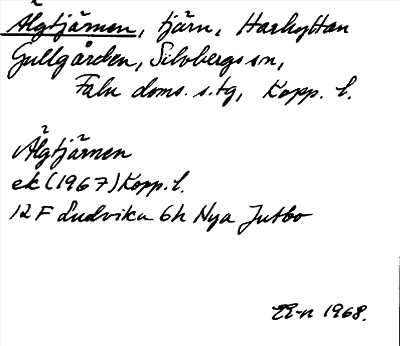 Älgtjärnen, tjärn, Harhyttan
Gullgården, Silvbergs sn,
Falu doms. s.tg, Kopp. l.
Älgtjärnen
ek (1967) Kopp. l.
12 F Ludvika 6h Nya Jutbo
1968.